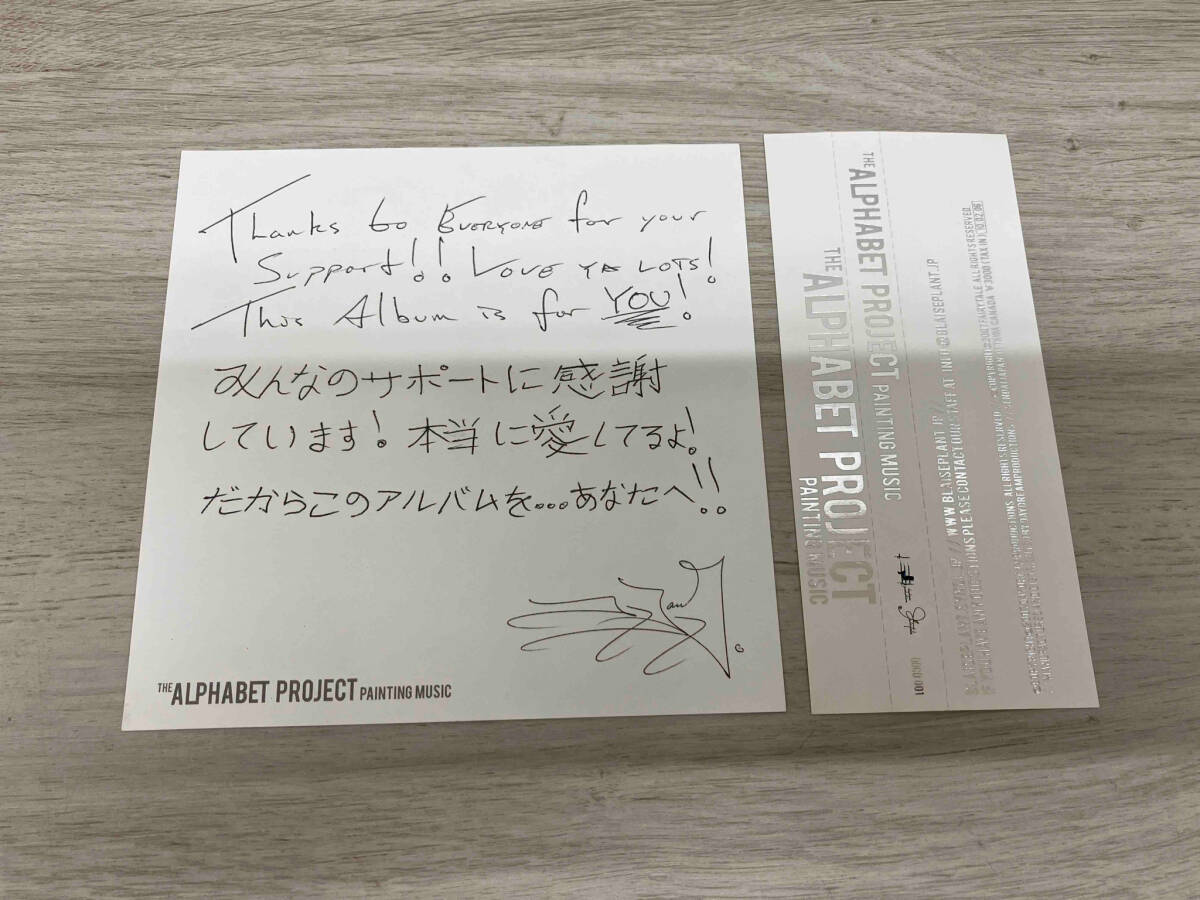 Thanks to Everyone for your
Support!! Love ya lots!
This Album is for YOU!
みんなのサポートに感謝
しています! 本当に愛してるよ!
だからこのアルバムを...あなたへ!!
THE ALPHABET PROJECT PAINTING MUSIC
THE ALPHABET PROJECT PAINTING MUSIC
THE ALPHABET PROJECT
PAINTING MUSIC
0000 001
// WWW.BLAISEPLANT.JP //
IF YOU HAVE ANY QUESTIONS PLEASE CONTACT OUR STAFF AT INFO@BLAISEPLANT.JP
ALL RIGHTS RESERVED
¥3000 (TAX IN)